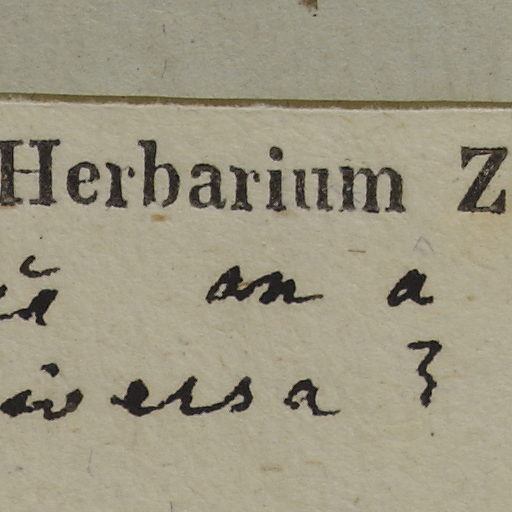 Herbarium Z
an a
iversa ?